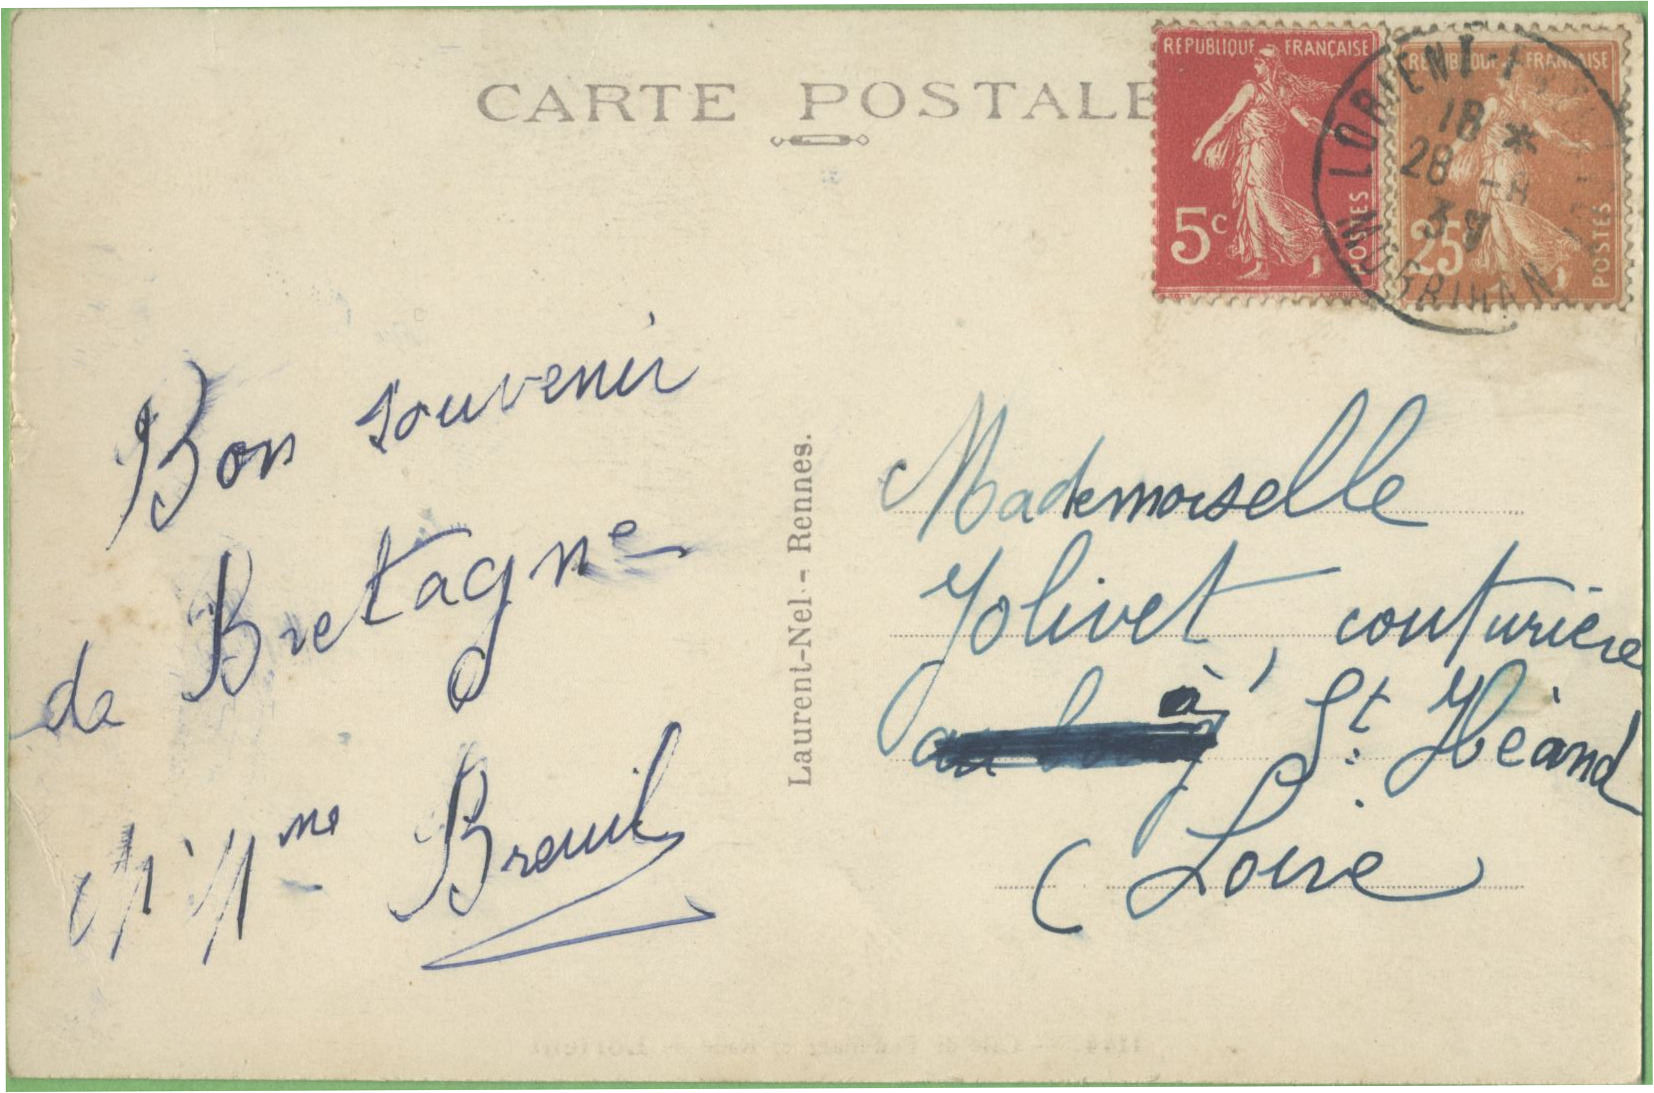 CARTE POSTALE
REPUBLIQUE FRANÇAISE
5c
POSTES
REPUBLIQUE FRANÇAISE
25
POSTES
LORIENT
18 *
28 -8
37
MORBIHAN
Bon souvenir
de Bretagne
Mme Breuil
Laurent-Nel - Rennes.
Mademoiselle
Jolivet, couturière
à St Héand
(Loire)